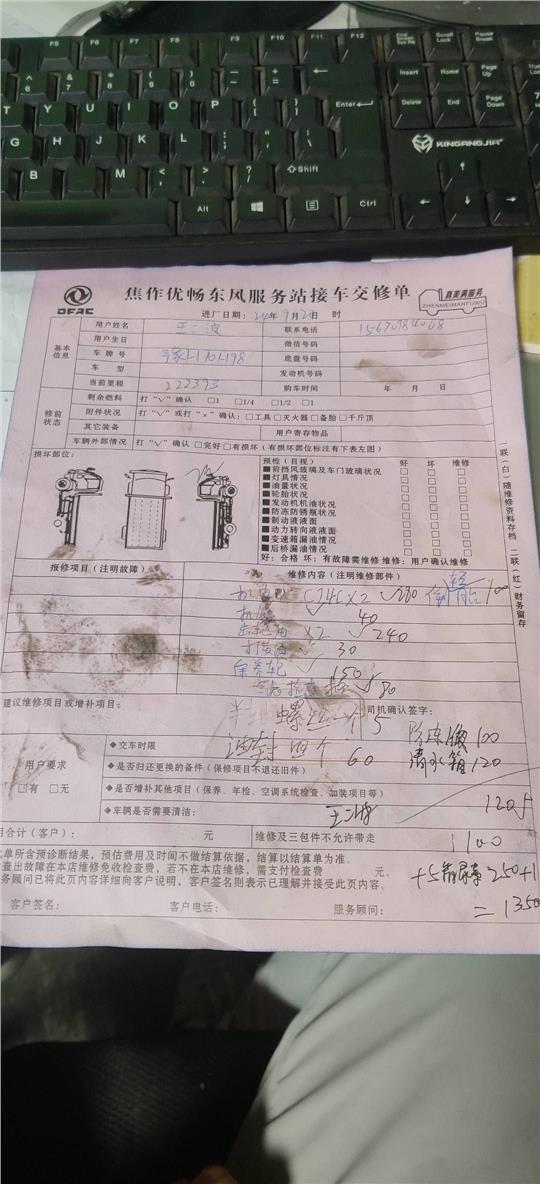 F5 F6 F7 F8 F9 F10 F11 F12
Insert Home Page Up
Delete End Page Down
Enter
KINGANGJIA
Shift
Alt Ctrl
DFAC
焦作优畅东风服务站接车交修单
真美满服务
ZHENMEIMANFUWU
进厂日期：24年9月2日 时
用户姓名 王二波 联系电话 15670984068
用户生日 微信号码
基本信息
车牌号 底盘号码
车型 发动机号码
当前里程 222393 购车时间 年 月 日
修前状态
剩余燃料 打“√”确认 □1 □1/4 □1/2 □1
附件状况 打“√”或打“×”确认：□工具□灭火器□备胎□千斤顶
其它装备 用户寄存物品
车辆外部情况 打“√”确认□完好□有损坏（有损坏部位标注有下表左图）
损坏部位：
预检（目视） 好 坏 维修
■前挡风玻璃及车门玻璃状况
■灯具情况
■油量状况
■轮胎状况
■发动机机油状况
■防冻防锈瓶状况
■制动液液面
■动力转向液液面
■变速箱漏油情况
■后桥漏油情况
好：合格 坏：有故障需维修 维修：用户确认维修
一联（白）随维修资料存档 二联（红）财务留存
报修项目（注明故障） 维修内容（注明维修部件）
CJ4C X2 100
机滤 40
齿轮油 X2 240
打黄油 30
保养轮 150
80
建议维修项目或增补项目： 半轴螺丝一个 5 司机确认签字：
防冻液 100
◆交车时限 油封四个 60 清水箱 120
用户要求
□有 □无
◆是否归还更换的备件（保修项目不退还旧件）
◆是否增补其他项目（保养、年检、空调系统检查、加装项目等）
◆车辆是否需要清洁： 王二波
合计（客户）： 元 维修及三包件不允许带走 1100
单所含预诊断结果，预估费用及时间不做结算依据，结算以结算单为准。
查出故障在本店维修免收检查费，若不在本店维修，需支付检查费 元。
务顾问已将此页内容详细向客户说明，客户签名则表示已理解并接受此页内容。
250+1
客户签名： 客户电话： 服务顾问： = 1350